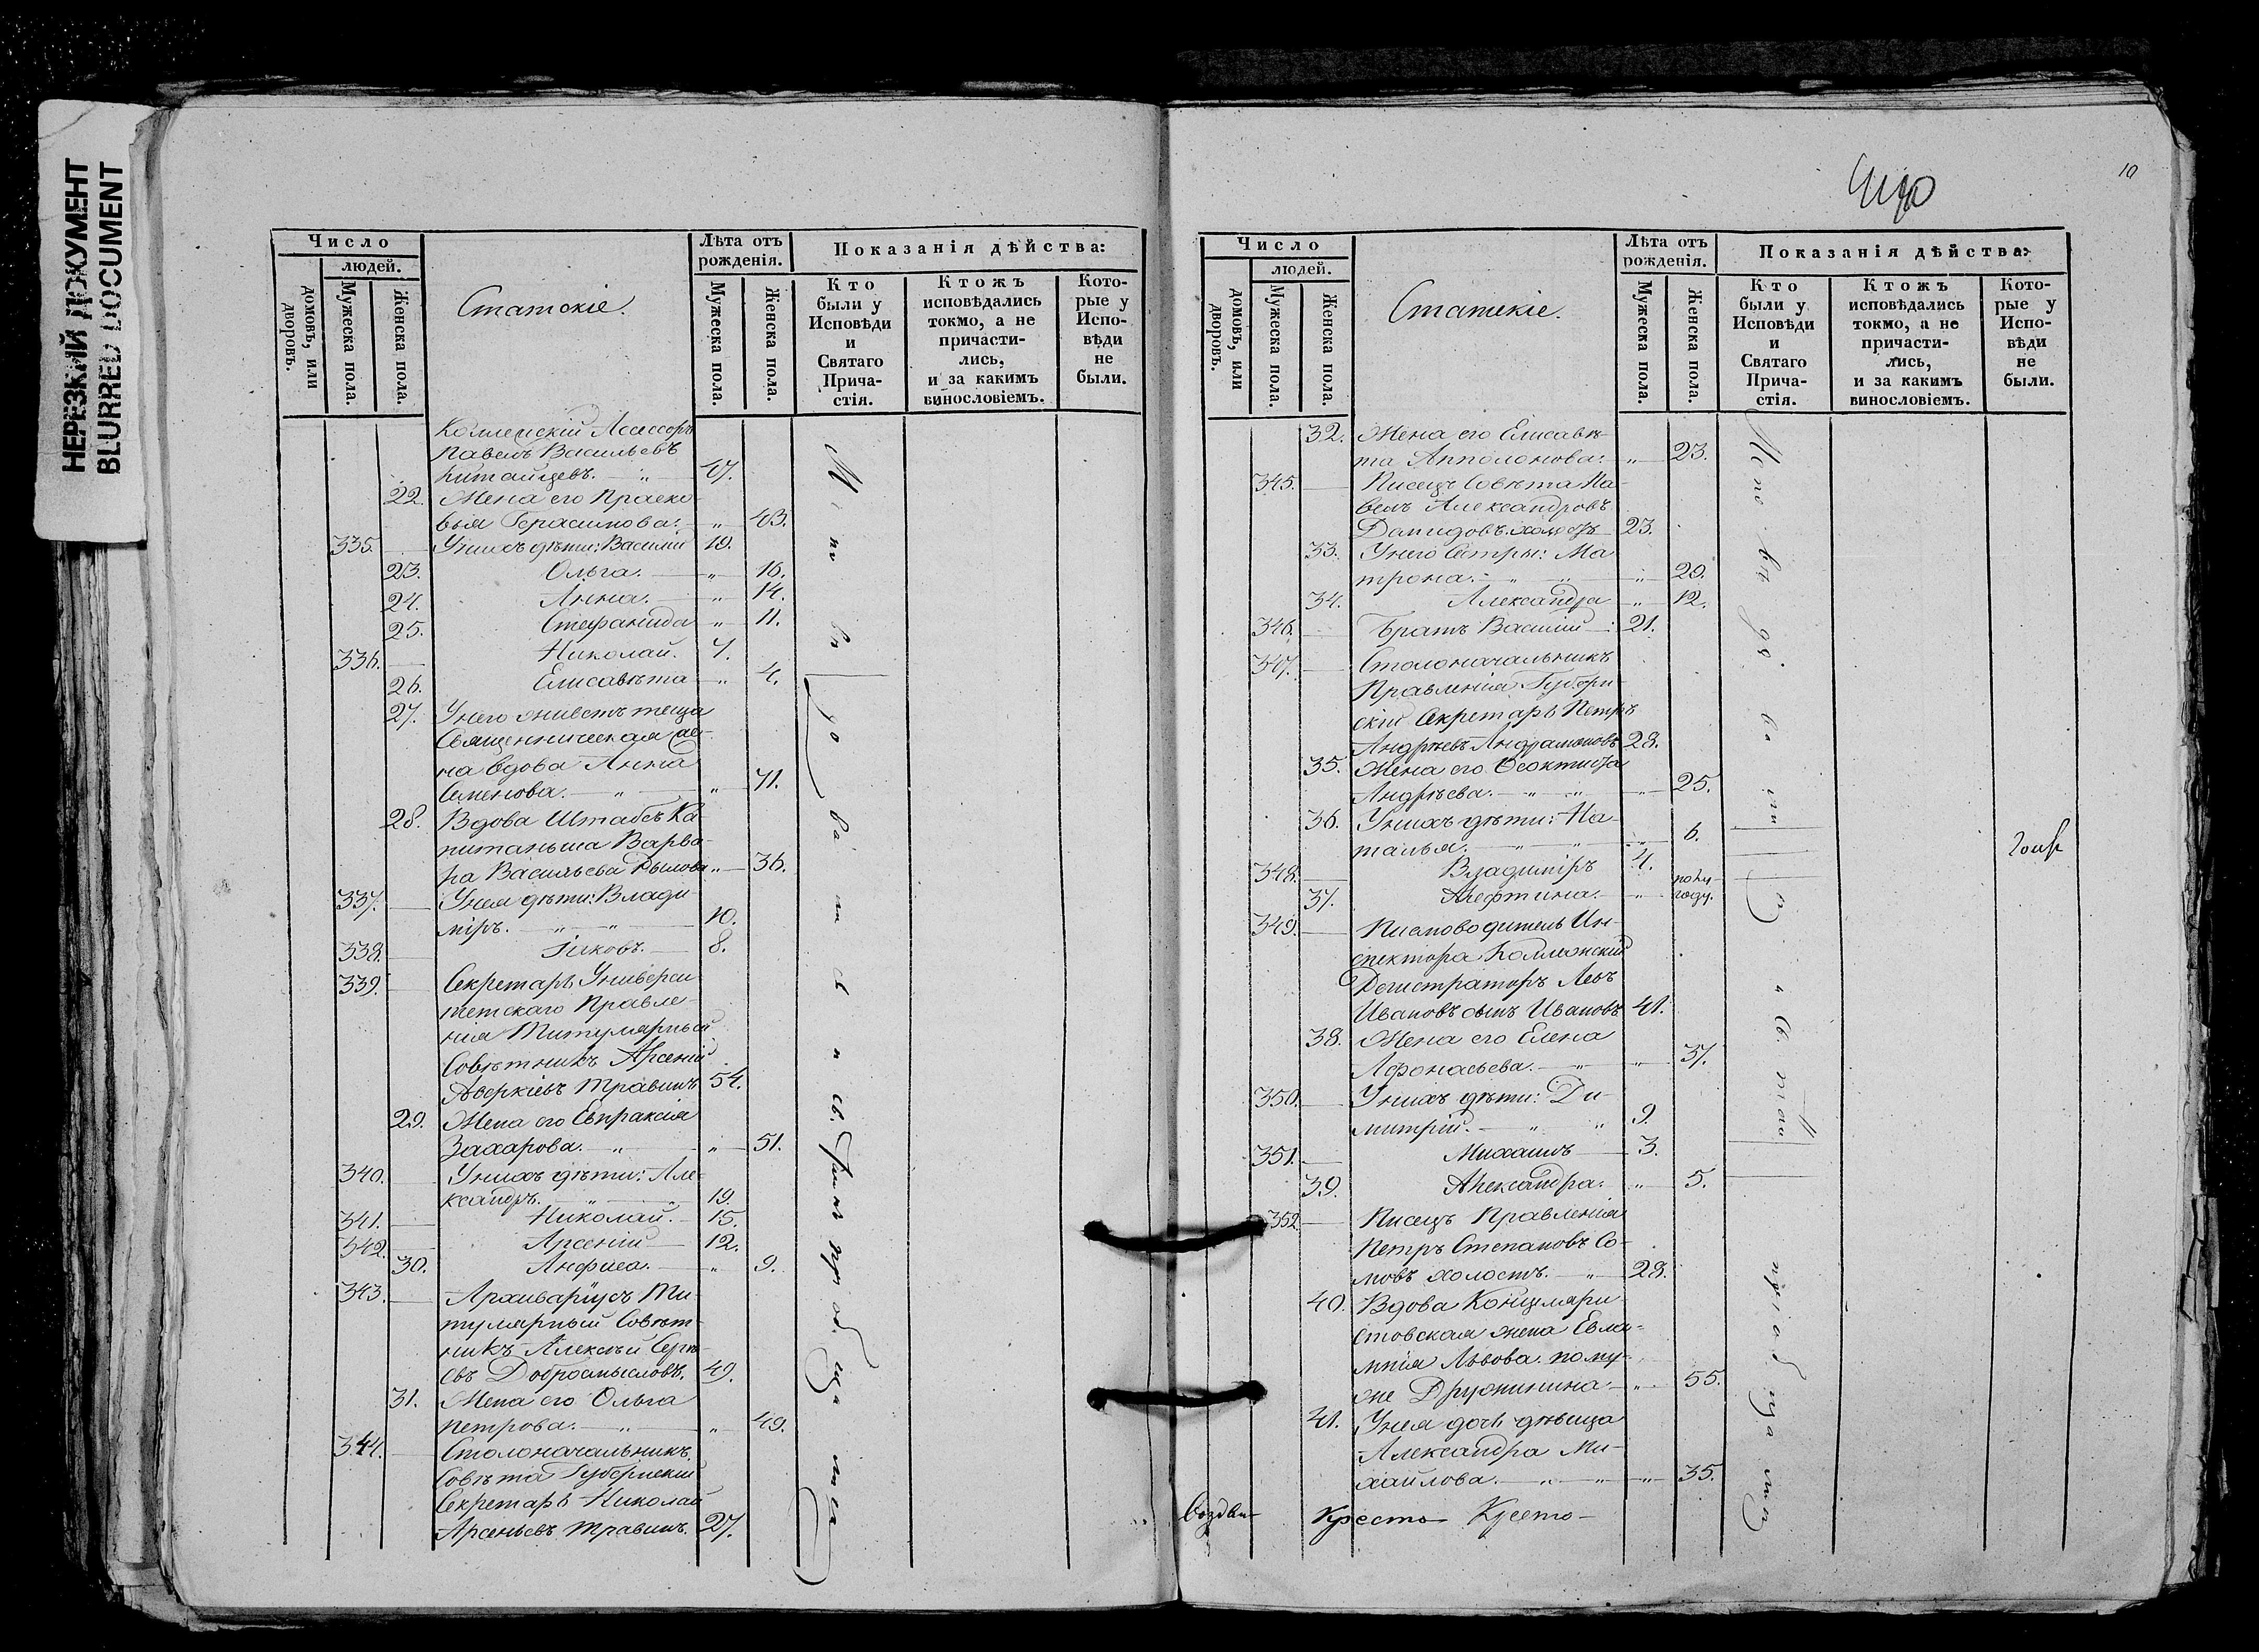 НЕРЕЗКИЙ ДОКУМЕНТ
BLURRED DOCUMENT
Число
людей.
домовъ, или дворовъ.
Мужеска пола.
Женска пола.
Статскіе.
Лѣта отъ рожденія.
Мужеска пола.
Женска пола.
Показанія дѣйства:
Кто были у Исповѣди и Святаго Прича-стія.
Ктожъ исповѣдались токмо, а не причасти-лись, и за какимъ винословіемъ.
Кото-рые у Испо-вѣди не были.
Коллежскій Ассессоръ
Павелъ Васильевъ
Китайцевъ. 47.
22. Жена его Праско-
вья Герасимова. 43.
335. У нихъ дѣти: Василій 19.
23. Ольга. 16.
24. Анна. 14.
25. Стефанида 11.
336. Николай. 7.
26. Елисавета 4.
27. У него живетъ теща
Священническая же-
на вдова Анна
Семенова. 71.
28. Вдова Штабсъ Ка-
питанша Варва-
ра Васильева 36.
337. У нея дѣти: Влади-
міръ. 10.
338. Іаковъ. 8.
339. Секретарь Универси-
тетскаго Правле-
нія Титулярный
Совѣтникъ Арсеній
Аверкіевъ Травинъ 54.
29. Жена его Евпраксія
Захарова. 51.
340. У нихъ дѣти: Але-
ксандръ. 19.
341. Николай. 15.
342. Арсеній 12.
30. Анфиса. 9.
343. Архиваріусъ Ти-
тулярный Совѣт-
никъ Алексѣй Сергѣ-
евъ Добросмысловъ. 49.
31. Жена его Ольга
Петрова. 49.
344. Столоначальникъ
Совѣта Губернскій
Секретарь Николай
Арсеньевъ Травинъ. 27.
10
Число
людей.
домовъ, или дворовъ.
Мужеска пола.
Женска пола.
Статскіе.
Лѣта отъ рожденія.
Мужеска пола.
Женска пола.
Показанія дѣйства:
Кто были у Исповѣди и Святаго Прича-стія.
Ктожъ исповѣдались токмо, а не причасти-лись, и за какимъ винословіемъ.
Кото-рые у Испо-вѣди не были.
32. Жена его Елисаве-
та Апполонова. 23.
345. Писецъ Совѣта Па-
велъ Александровъ
23.
33. У него Сестры: Ма-
трона. 29.
34. Александра 12.
346. Братъ Василій 21.
347. Столоначальникъ
Правленія Губерн-
скій Секретарь Петръ
Андреевъ 28.
35. Жена его Ѳеоктиста
Андрѣева. 25.
36. У нихъ дѣти: На-
талья. 6.
348. Владиміръ 4.
37. полу-
году.
349. Письмоводитель Ин-
спектора Коллежскій
Регистраторъ Левъ
Ивановъ сынъ Ивановъ 41.
38. Жена его Елена
Афонасьева. 37.
350. У нихъ дѣти: Ди-
митрій. 9.
351. Михаилъ 3.
39. Александра. 5.
352. Писецъ Правленія
Петръ Степановъ Со-
мовъ холостъ. 28.
40. Вдова Концеляри-
стовская жена Евла-
мпія Львова по му-
же Дружинина 55.
41. У нея дочь дѣвица
Александра Ми-
хайлова. 35.
Воздви- Кресто- Кресто-